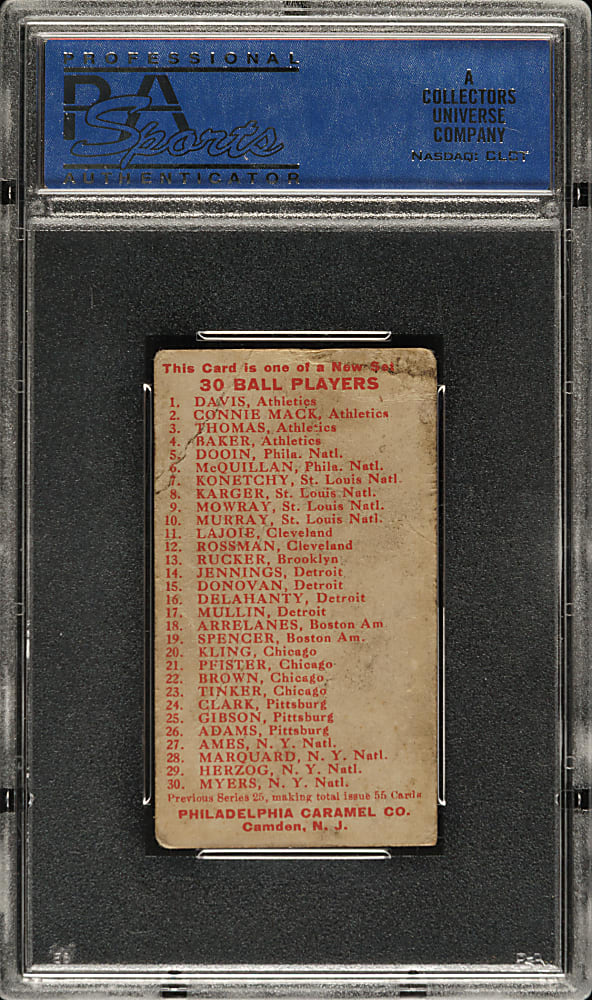 PROFESSIONAL
PSA
Sports
AUTHENTICATOR
A
COLLECTORS
UNIVERSE
COMPANY
NASDAQ: CLCT
This Card is one of a New Set
30 BALL PLAYERS
1. DAVIS, Athletics
2. CONNIE MACK, Athletics
3. THOMAS, Athletics
4. BAKER, Athletics
5. DOOIN, Phila. Natl.
6. McQUILLAN, Phila. Natl.
7. KONETCHY, St. Louis Natl.
8. KARGER, St. Louis Natl.
9. MOWRAY, St. Louis Natl.
10. MURRAY, St. Louis Natl.
11. LAJOIE, Cleveland
12. ROSSMAN, Cleveland
13. RUCKER, Brooklyn
14. JENNINGS, Detroit
15. DONOVAN, Detroit
16. DELAHANTY, Detroit
17. MULLIN, Detroit
18. ARRELANES, Boston Am
19. SPENCER, Boston Am.
20. KLING, Chicago
21. PFISTER, Chicago
22. BROWN, Chicago
23. TINKER, Chicago
24. CLARK, Pittsburg
25. GIBSON, Pittsburg
26. ADAMS, Pittsburg
27. AMES, N. Y. Natl.
28. MARQUARD, N. Y. Natl.
29. HERZOG, N. Y. Natl.
30. MYERS, N. Y. Natl.
Previous Series 25, making total issue 55 Cards
PHILADELPHIA CARAMEL CO.
Camden, N. J.